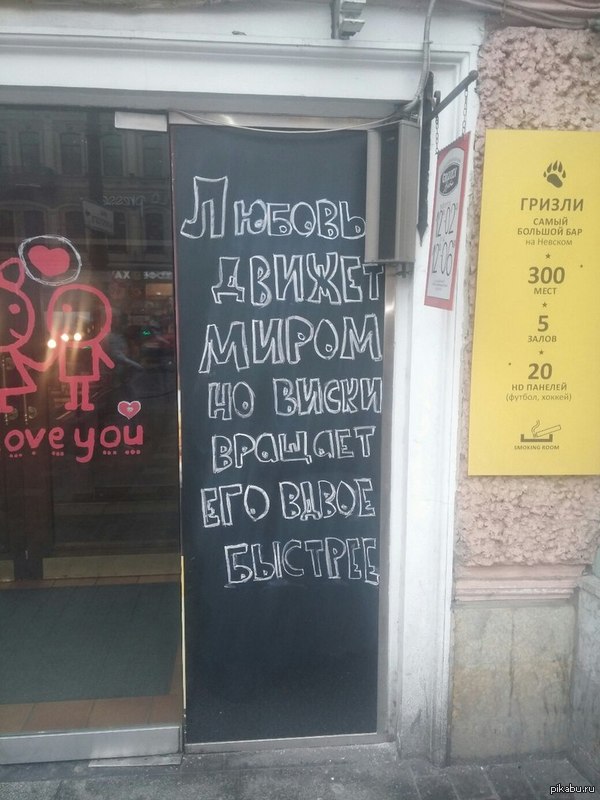 Любовь
движет
миром
но виски
вращает
его вдвое
быстрее
ove you
ГРИЗЛИ
САМЫЙ
БОЛЬШОЙ БАР
на Невском
300
МЕСТ
5
ЗАЛОВ
20
HD ПАНЕЛЕЙ
(футбол, хоккей)
SMOKING ROOM
pikabu.ru